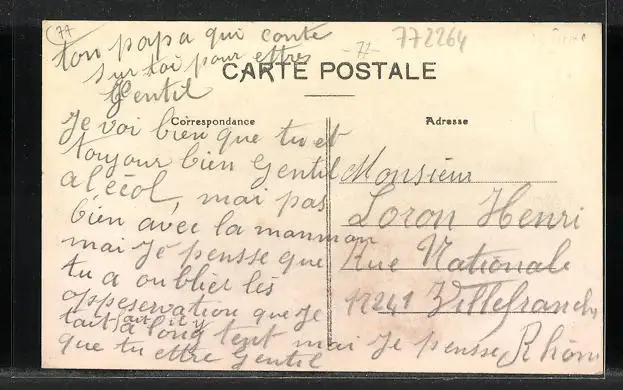 77
ton papa qui conte
sur toi pour ettres
Gentil
-77-
772264
CARTE POSTALE
Correspondance
Adresse
Je voi bien que tu et
toujour bien Gentil
al écol, mai pas
bien avec la manman
mai Jé pensse que
tu a oublier lés
oppeservation que Je
tait fait il y
a long tent mai Je pensse
que tu ettre Gentil
Monsieur
Loron Henri
Rue Nationale
Villefranche
Rhône